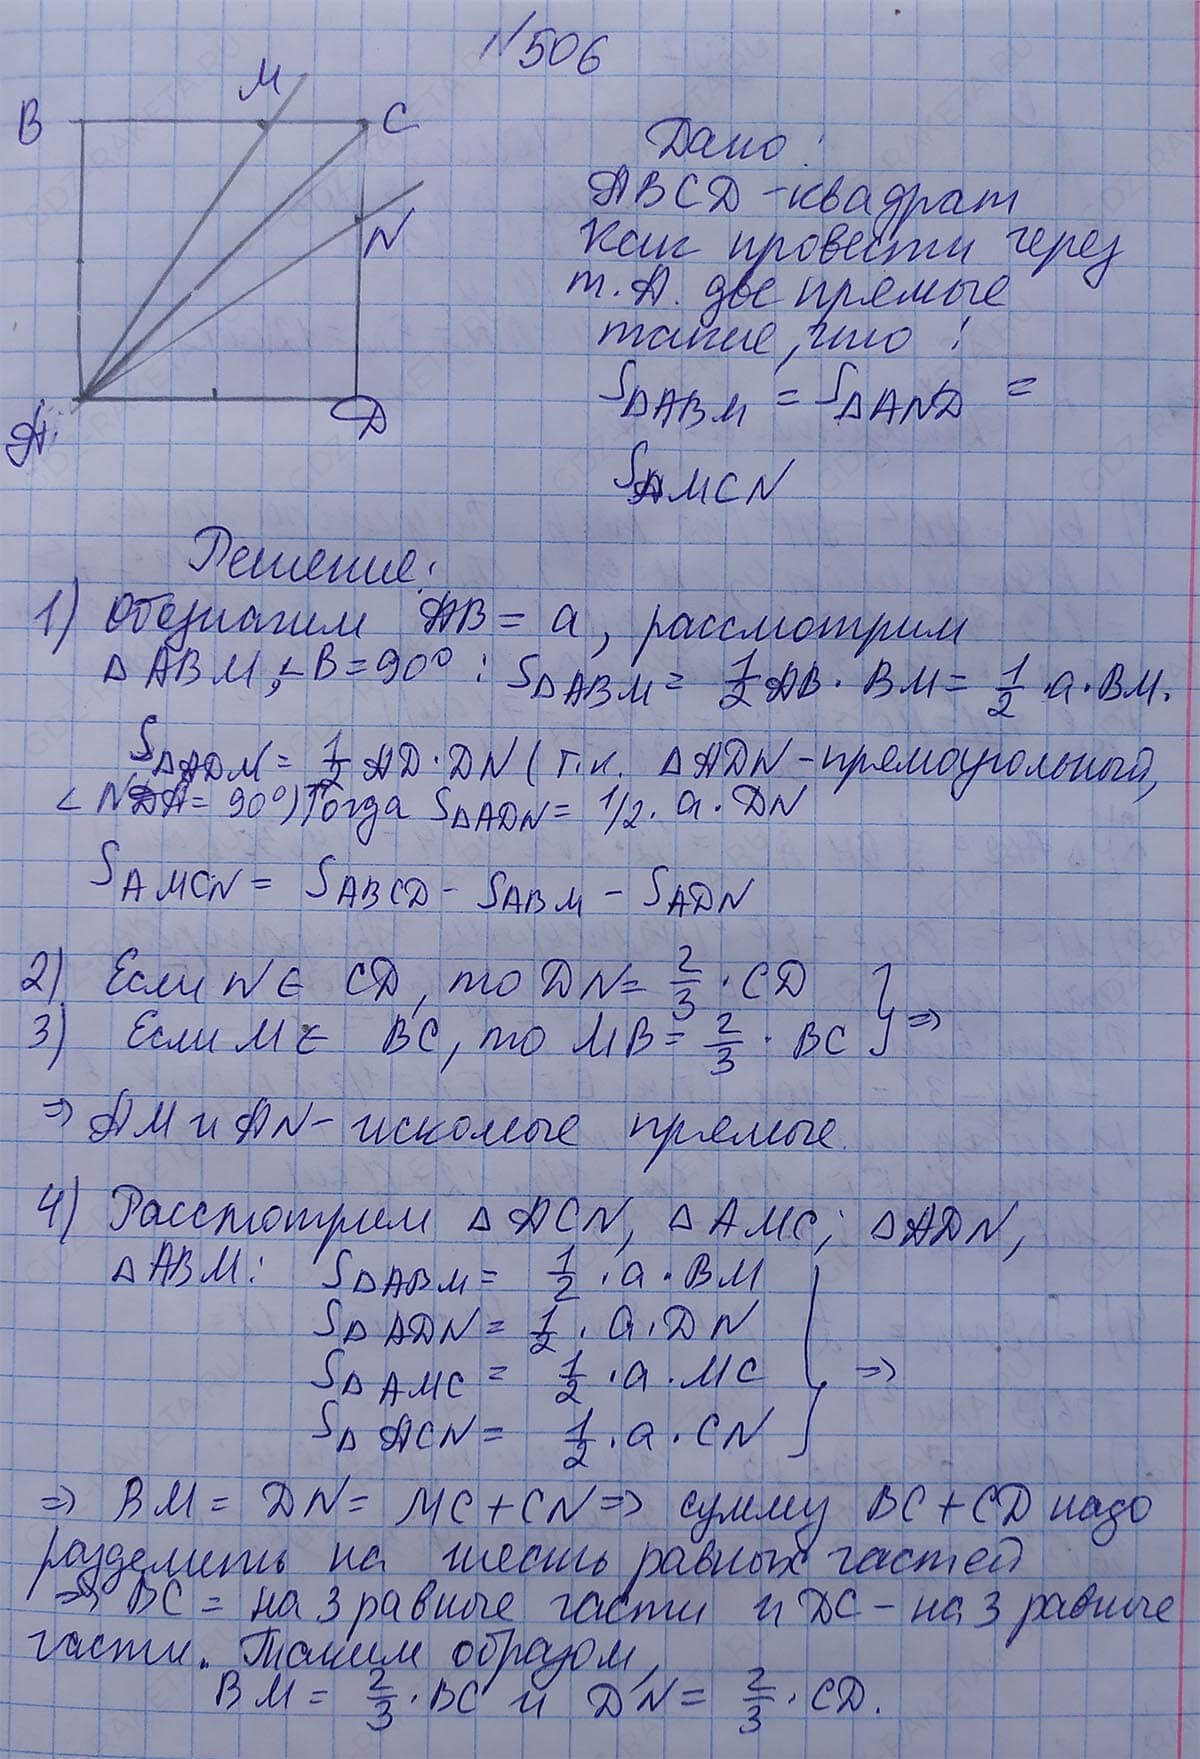 №506
M
B
C
N
A
D
Дано:
ABCD - квадрат
Как провести через
т. A. две прямые
такие, что:
S△ABM = S△AND =
SAMCN
Решение:
1) Обозначим AB = a, рассмотрим
△ABM, ∠B = 90° : S△ABM = 1/2 AB · BM = 1/2 · a · BM.
S△ADN = 1/2 AD · DN (т.к. △ADN - прямоугольный,
∠NDA = 90°) Тогда S△ADN = 1/2 · a · DN
SAMCN = SABCD - SABM - SADN
2) Если N ∈ CD, то DN = 2/3 · CD
3) Если M ∈ BC, то MB = 2/3 · BC } ⇒
⇒ AM и AN - искомые прямые.
4) Рассмотрим △ACN, △AMC; △ADN,
△ABM: S△ABM = 1/2 · a · BM
S△ADN = 1/2 · a · DN
S△AMC = 1/2 · a · MC } ⇒
S△ACN = 1/2 · a · CN
⇒ BM = DN = MC + CN ⇒ сумму BC + CD надо
разделить на шесть равных частей
⇒ BC = на 3 равные части и DC - на 3 равные
части. Таким образом,
BM = 2/3 · BC и DN = 2/3 · CD.